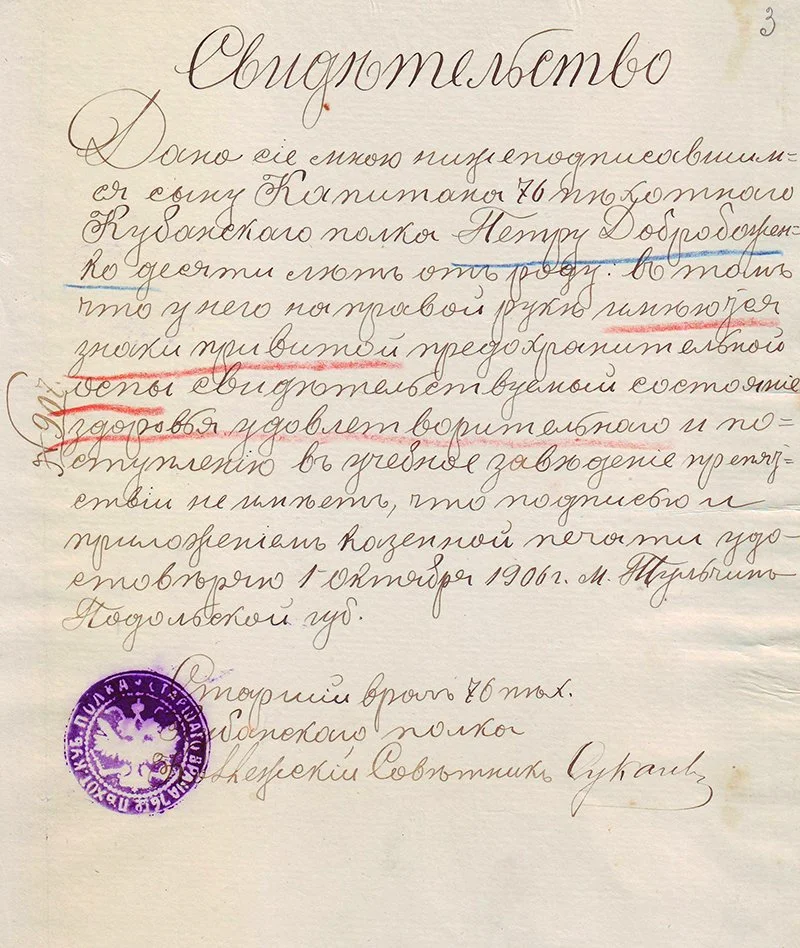 3
Свидѣтельство
Дано сіе мною нижеподписавшим=
ся сыну Капитана 76 пѣхотнаго
Кубанскаго полка Петру Добробожен-
ко десяти лѣтъ отъ роду. въ томъ
что у него на правой рукѣ имѣются
знаки привитой предохранительной
оспы свидѣтельствуемый состояніе
здоровья удовлетворительнаго и по=
ступленію въ учебное завѣденіе препят=
ствій не имѣетъ, что подписью и
приложеніемъ казенной печати удо-
стовѣряю 1 октября 1906 г. м. Тульчинъ
Подольской губ.
№ 907
Старшій врачъ 76 пѣх.
Кубанскаго полка
Совѣтникъ
СТАРШАГО ВРАЧА 76го ПѢХОТ. КУБ. ПОЛКА